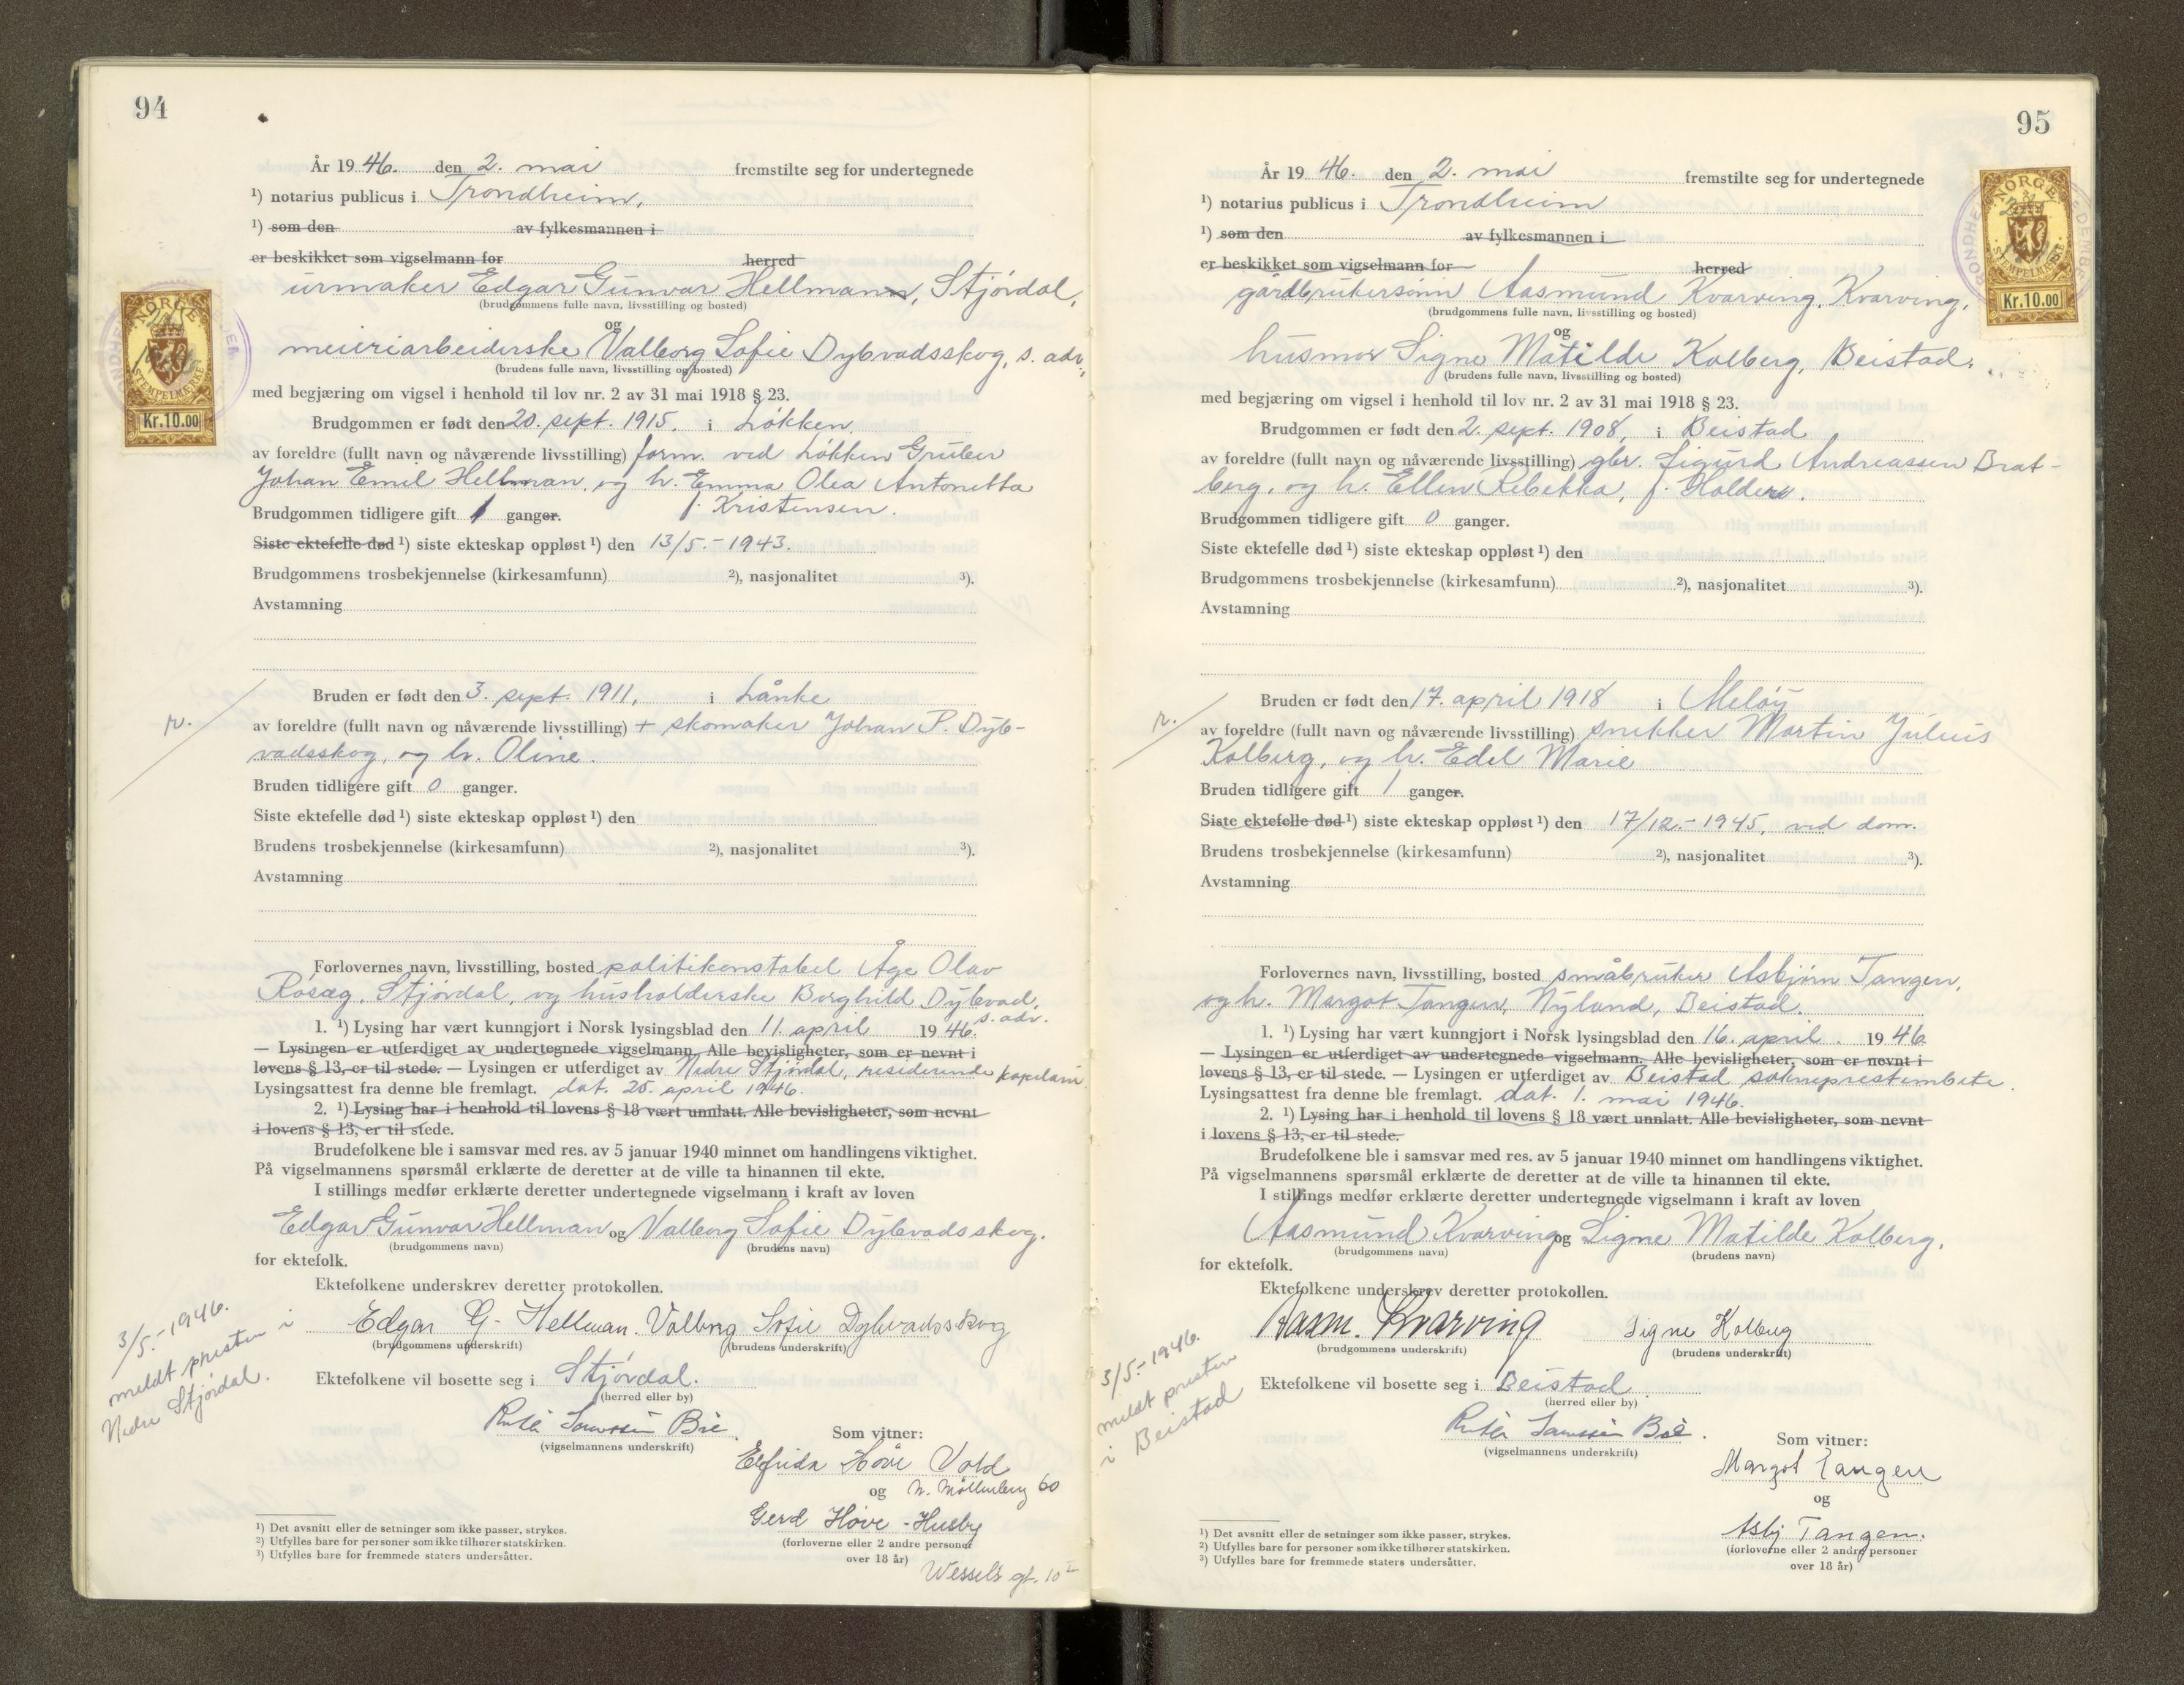 94
År 1946. den 2. mai fremstilte seg for undertegnede
¹) notarius publicus i Trondheim,
¹) som den av fylkesmannen i
er beskikket som vigselmann for herred
urmaker Edgar Gunvar Hellmann, Stjördal,
(brudgommens fulle navn, livsstilling og bosted)
og
meieriarbeiderske Valborg Sofie Dybvadsskog, s. adr.,
(brudens fulle navn, livsstilling og bosted)
med begjæring om vigsel i henhold til lov nr. 2 av 31 mai 1918 § 23.
Brudgommen er født den 20. sept. 1915. i Lökken.
av foreldre (fullt navn og nåværende livsstilling) form. ved Lökken Gruber
Johan Emil Hellman, og h. Emma Olea Antonetta
f. Kristensen.
Brudgommen tidligere gift 1 ganger.
Siste ektefelle død ¹) siste ekteskap oppløst ¹) den 13/5.-1943.
Brudgommens trosbekjennelse (kirkesamfunn) ²), nasjonalitet ³).
Avstamning
Bruden er født den 3. sept. 1911, i Lånke
av foreldre (fullt navn og nåværende livsstilling) + skomaker Johan P. Dyb-
vadsskog, og h. Oline.
Bruden tidligere gift 0 ganger.
Siste ektefelle død ¹) siste ekteskap oppløst ¹) den
Brudens trosbekjennelse (kirkesamfunn) ²), nasjonalitet ³).
Avstamning
Forlovernes navn, livsstilling, bosted politikonstabel Åge Olav
Rösæg, Stjördal, og husholderske Borghild Dybvad,
s. adr.
1. ¹) Lysing har vært kunngjort i Norsk lysingsblad den 11. april 1946.
— Lysingen er utferdiget av undertegnede vigselmann. Alle bevisligheter, som er nevnt i
lovens § 13, er til stede. — Lysingen er utferdiget av Nedre Stjördal, residerende kapelani
Lysingsattest fra denne ble fremlagt. dat. 25. april 1946.
2. ¹) Lysing har i henhold til lovens § 18 vært unnlatt. Alle bevisligheter, som nevnt
i lovens § 13, er til stede.
Brudefolkene ble i samsvar med res. av 5 januar 1940 minnet om handlingens viktighet.
På vigselmannens spørsmål erklærte de deretter at de ville ta hinannen til ekte.
I stillings medfør erklærte deretter undertegnede vigselmann i kraft av loven
Edgar Gunvar Hellman og Valborg Sofie Dybvadsskog.
(brudgommens navn) (brudens navn)
for ektefolk.
Ektefolkene underskrev deretter protokollen.
Edgar G. Hellman. Valborg Sofie Dybvadsskog
(brudgommens underskrift) (brudens underskrift)
3/5.-1946.
meldt presten i
Nedre Stjördal.
Ektefolkene vil bosette seg i Stjördal.
(herred eller by)
(vigselmannens underskrift)
Som vitner:
Elfrida Høve Vold
og N. Möllenberg 60
Gerd Høve-Husby
(forloverne eller 2 andre personer
over 18 år)
Wessels gt. 10
¹) Det avsnitt eller de setninger som ikke passer, strykes.
²) Utfylles bare for personer som ikke tilhører statskirken.
³) Utfylles bare for fremmede staters undersåtter.
NORGE
STEMPELMERKE
Kr.10.00
95
År 1946. den 2. mai fremstilte seg for undertegnede
¹) notarius publicus i Trondheim
¹) som den av fylkesmannen i
er beskikket som vigselmann for herred
gårdbrukersönn Aasmund Kvarving, Kvarving,
(brudgommens fulle navn, livsstilling og bosted)
og
husmor Signe Matilde Kolberg, Beistad.
(brudens fulle navn, livsstilling og bosted)
med begjæring om vigsel i henhold til lov nr. 2 av 31 mai 1918 § 23.
Brudgommen er født den 2. sept. 1908, i Beistad
av foreldre (fullt navn og nåværende livsstilling) gbr. Sigurd Andreassen Brat-
berg, og h. Ellen Rebekka, f. Holden.
Brudgommen tidligere gift 0 ganger.
Siste ektefelle død ¹) siste ekteskap oppløst ¹) den
Brudgommens trosbekjennelse (kirkesamfunn) ²), nasjonalitet ³).
Avstamning
Bruden er født den 17. april 1918 i Meløy
av foreldre (fullt navn og nåværende livsstilling) snekker Martin Julius
Kolberg, og h. Edel Marie
Bruden tidligere gift 1 ganger.
Siste ektefelle død ¹) siste ekteskap oppløst ¹) den 17/12.-1945, ved dom.
Brudens trosbekjennelse (kirkesamfunn) ²), nasjonalitet ³).
Avstamning
Forlovernes navn, livsstilling, bosted småbruker Asbjørn Tangen,
og h. Margot Tangen, Nyland, Beistad.
1. ¹) Lysing har vært kunngjort i Norsk lysingsblad den 16. april. 1946
— Lysingen er utferdiget av undertegnede vigselmann. Alle bevisligheter, som er nevnt i
lovens § 13, er til stede. — Lysingen er utferdiget av Beistad sokneprestembete.
Lysingsattest fra denne ble fremlagt. dat. 1. mai 1946.
2. ¹) Lysing har i henhold til lovens § 18 vært unnlatt. Alle bevisligheter, som nevnt
i lovens § 13, er til stede.
Brudefolkene ble i samsvar med res. av 5 januar 1940 minnet om handlingens viktighet.
På vigselmannens spørsmål erklærte de deretter at de ville ta hinannen til ekte.
I stillings medfør erklærte deretter undertegnede vigselmann i kraft av loven
Aasmund Kvarving og Signe Matilde Kolberg.
(brudgommens navn) (brudens navn)
for ektefolk.
Ektefolkene underskrev deretter protokollen.
Aasm. Kvarving Signe Kolberg
(brudgommens underskrift) (brudens underskrift)
3/5.-1946.
meldt presten
i Beistad
Ektefolkene vil bosette seg i Beistad
(herred eller by)
(vigselmannens underskrift)
Som vitner:
Margot Tangen
og
Asbj Tangen.
(forloverne eller 2 andre personer
over 18 år)
¹) Det avsnitt eller de setninger som ikke passer, strykes.
²) Utfylles bare for personer som ikke tilhører statskirken.
³) Utfylles bare for fremmede staters undersåtter.
NORGE
STEMPELMERKE
Kr.10.00